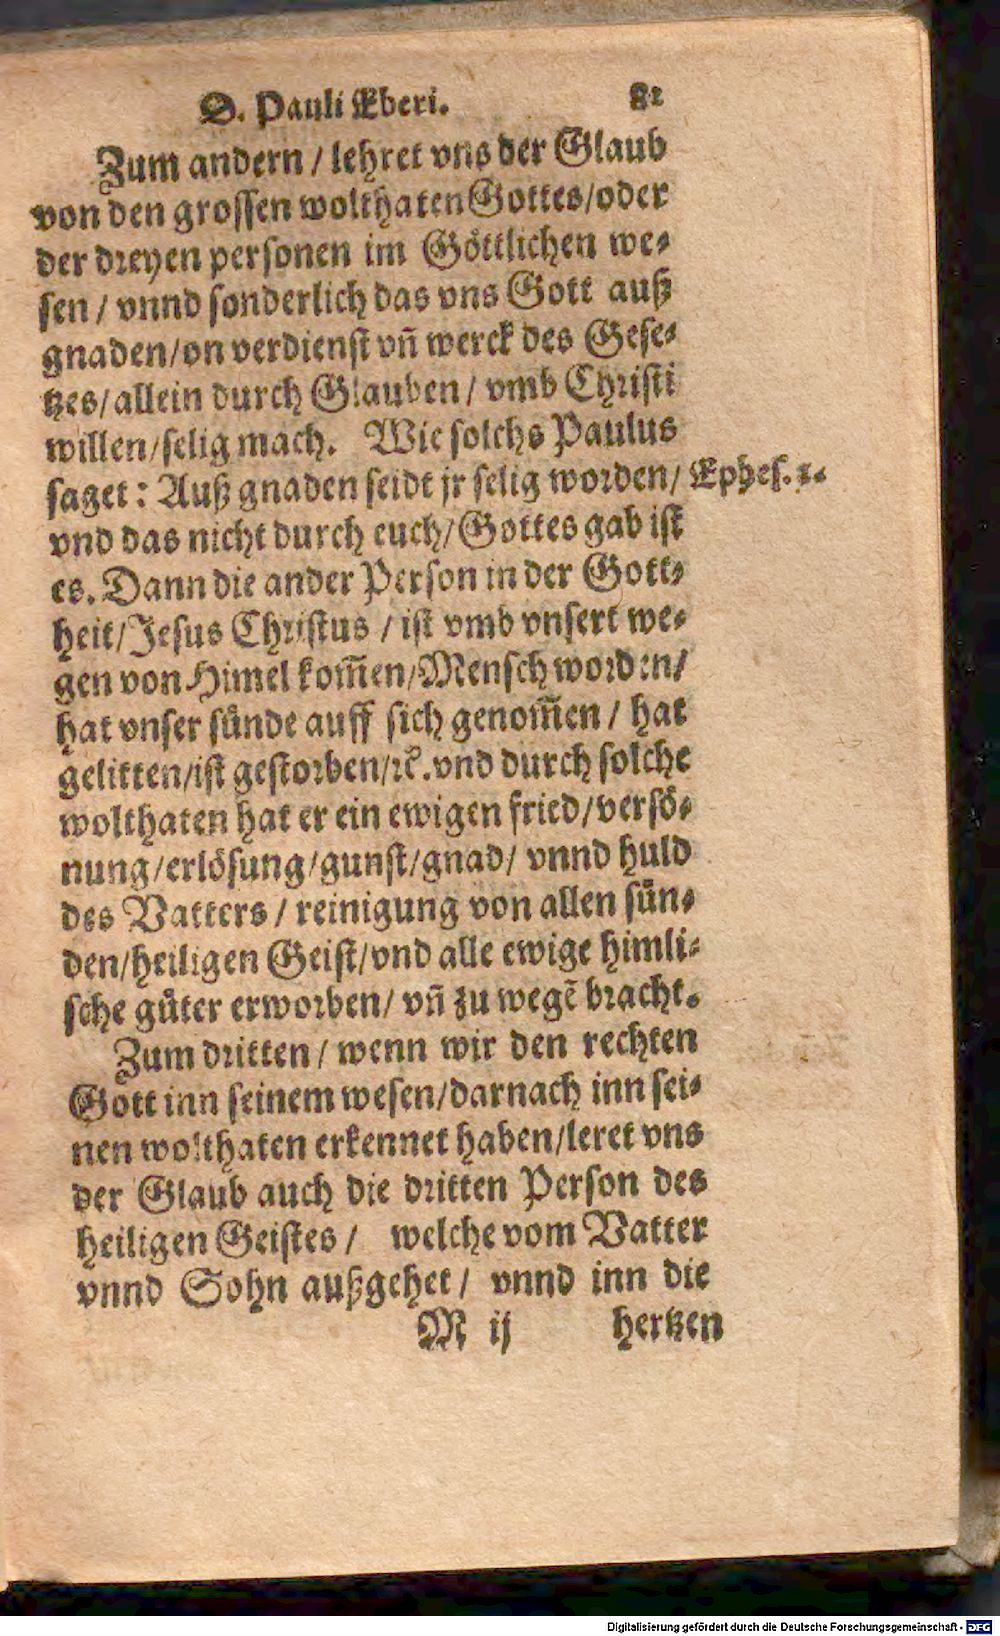 D. Pauli Eberi. 81
Zum andern / lehret vns der Glaub
von den grossen wolthaten Gottes/oder
der dreyen personen im Göttlichen we⸗
sen / vnnd sonderlich das vns Gott auß
gnaden/on verdienst vñ werck des Gese⸗
tzes/allein durch Glauben / vmb Christi
willen/selig mach. Wie solchs Paulus
saget: Auß gnaden seidt jr selig worden/ Ephes. 2.
vnd das nicht durch euch/Gottes gab ist
es. Dann die ander Person in der Gott⸗
heit/Jesus Christus / ist vmb vnsert we⸗
gen von Himel kom̃en/Mensch worden/
hat vnser sünde auff sich genom̃en / hat
gelitten/ist gestorben/ꝛc̃. vnd durch solche
wolthaten hat er ein ewigen fried/versö⸗
nung/erlösung/gunst/gnad/ vnnd huld
des Vatters / reinigung von allen sün⸗
den/heiligen Geist/vnd alle ewige himli⸗
sche güter erworben/ vñ zu wegẽ bracht.
Zum dritten / wenn wir den rechten
Gott inn seinem wesen/darnach inn sei⸗
nen wolthaten erkennet haben/leret vns
der Glaub auch die dritten Person des
heiligen Geistes / welche vom Vatter
vnnd Sohn außgehet / vnnd inn die
M ij hertzen
Digitalisierung gefördert durch die Deutsche Forschungsgemeinschaft - DFG